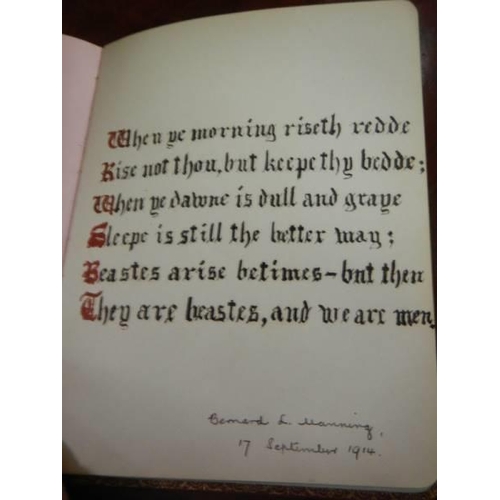 When ye morning riseth redde
Rise not thou, but keepe thy bedde;
When ye dawne is dull and graye
Sleepe is still the better way;
Beastes arise betimes - but then
They are beastes, and we are men.
Bernard L. Manning,
17 September 1914.